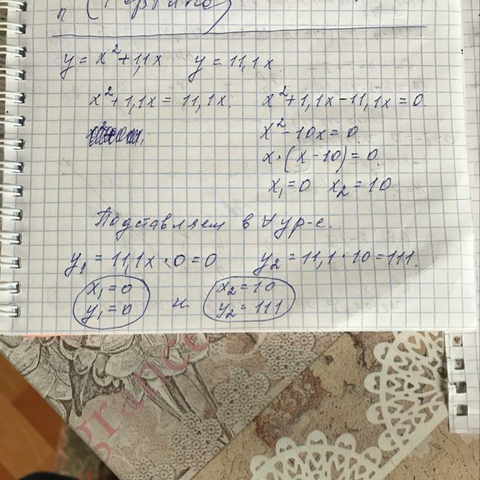 n
y = x² + 1,1x y = 11,1x
x² + 1,1x = 11,1x. x² + 1,1x - 11,1x = 0.
x² - 10x = 0.
x · (x - 10) = 0.
x₁ = 0 x₂ = 10.
Подставляем в ∀ ур-е.
y₁ = 11,1x · 0 = 0 y₂ = 11,1 · 10 = 111.
x₁ = 0 и x₂ = 10
y₁ = 0 y₂ = 111